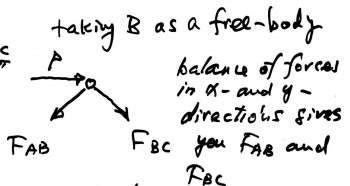 taking B as a free-body
P
balance of forces
in x- and y-
directions gives
F_AB F_BC you F_AB and
F_BC